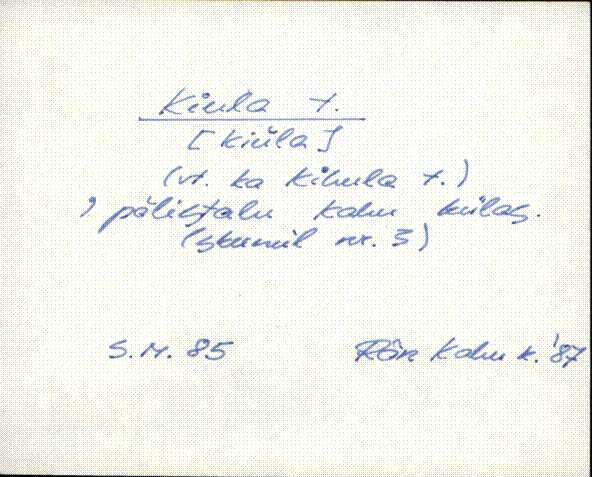 Kiula t.
[kiùla]
(vt. ka Kihula t.)
, pälistalu Kahu külas.
(skeemil nr. 3)
S.M. 85 Rõn Kahu k. '87